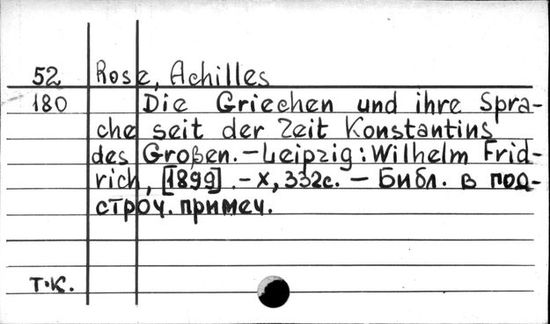 52 Rose, Achilles
180 Die Griechen und ihre Spra-
che seit der Zeit Konstantins
des Großen.-Leipzig: Wilhelm Frid-
rich, [1899].-X, 332с. - Библ. в под-
строч. примеч.
Т.К.